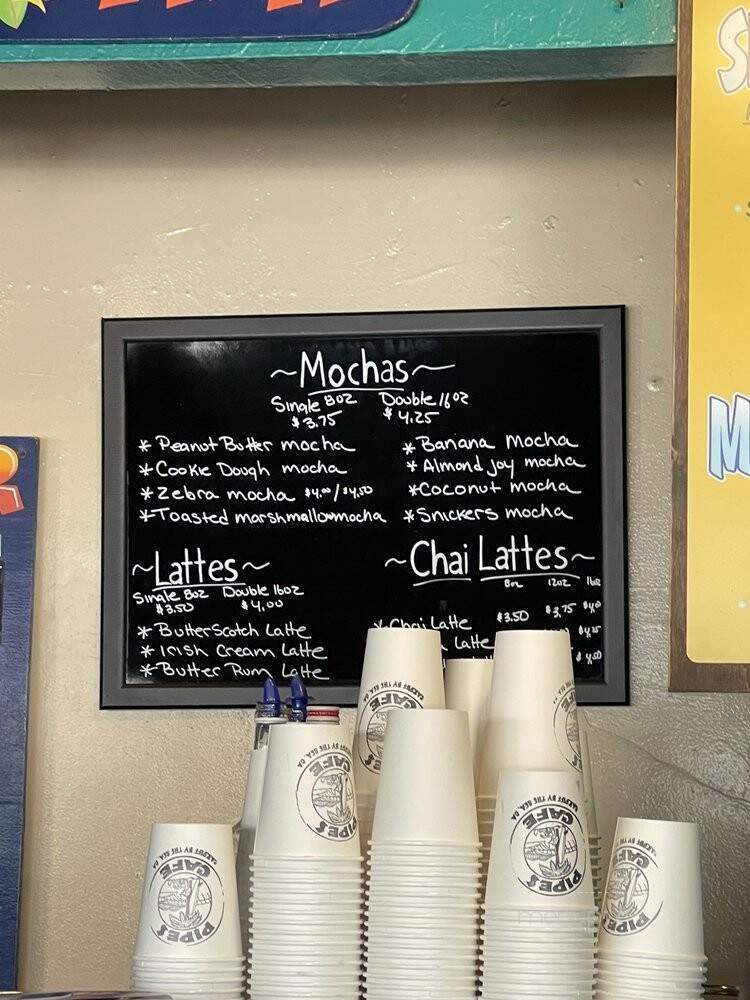 ~Mochas~
Single 8oz Double 16oz
$3.75 $4.25
* Peanut Butter mocha
* Cookie Dough mocha
* Zebra mocha $4.00/$4.50
* Toasted marshmallow mocha
* Banana Mocha
* Almond Joy mocha
* Coconut mocha
* Snickers mocha
~Lattes~
Single 8oz Double 16oz
$3.50 $4.00
* Butterscotch Latte
* Irish Cream Latte
* Butter Rum Latte
~Chai Lattes~
8oz 12oz 16oz
* Chai Latte $3.50 $3.75
Latte $4.25
$4.50
PIPES
CAFE
CARDIFF BY THE SEA, CA
PIPES
CAFE
CARDIFF BY THE SEA, CA
PIPES
CAFE
PIPES
CAFE
CARDIFF BY THE SEA, CA
PIPES
CAFE